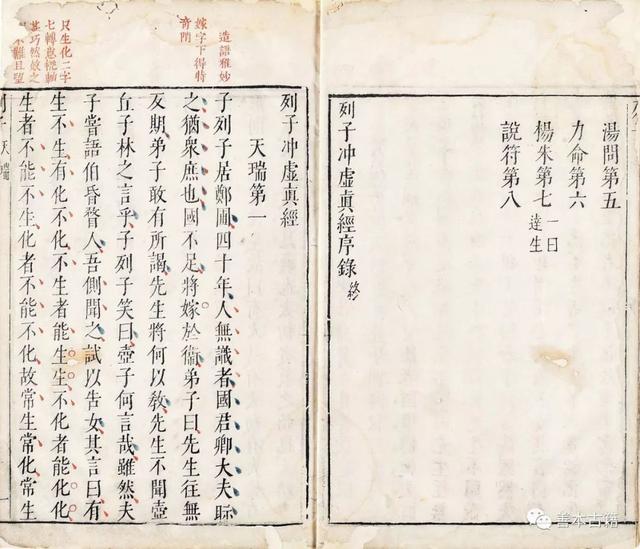 湯問第五
力命第六
楊朱第七 一曰達生
說符第八
列子冲虛眞經序錄 終
造語雅妙
嫁字下得特
奇
只生化二字
七轉
甚巧然
不離且望
列子冲虛眞經
天瑞第一
子列子居鄭圃四十年人無識者國君卿大夫眎
之猶衆庶也國不足將嫁於衞弟子曰先生往無
反期弟子敢有所謁先生將何以敎先生不聞壺
丘子林之言乎子列子笑曰壺子何言哉雖然夫
子嘗語伯昏瞀人吾側聞之試以告女其言曰有
生不生有化不化不生者能生生不化者能化化
生者不能不生化者不能不化故常生常化常生
列子 天瑞
善本古籍